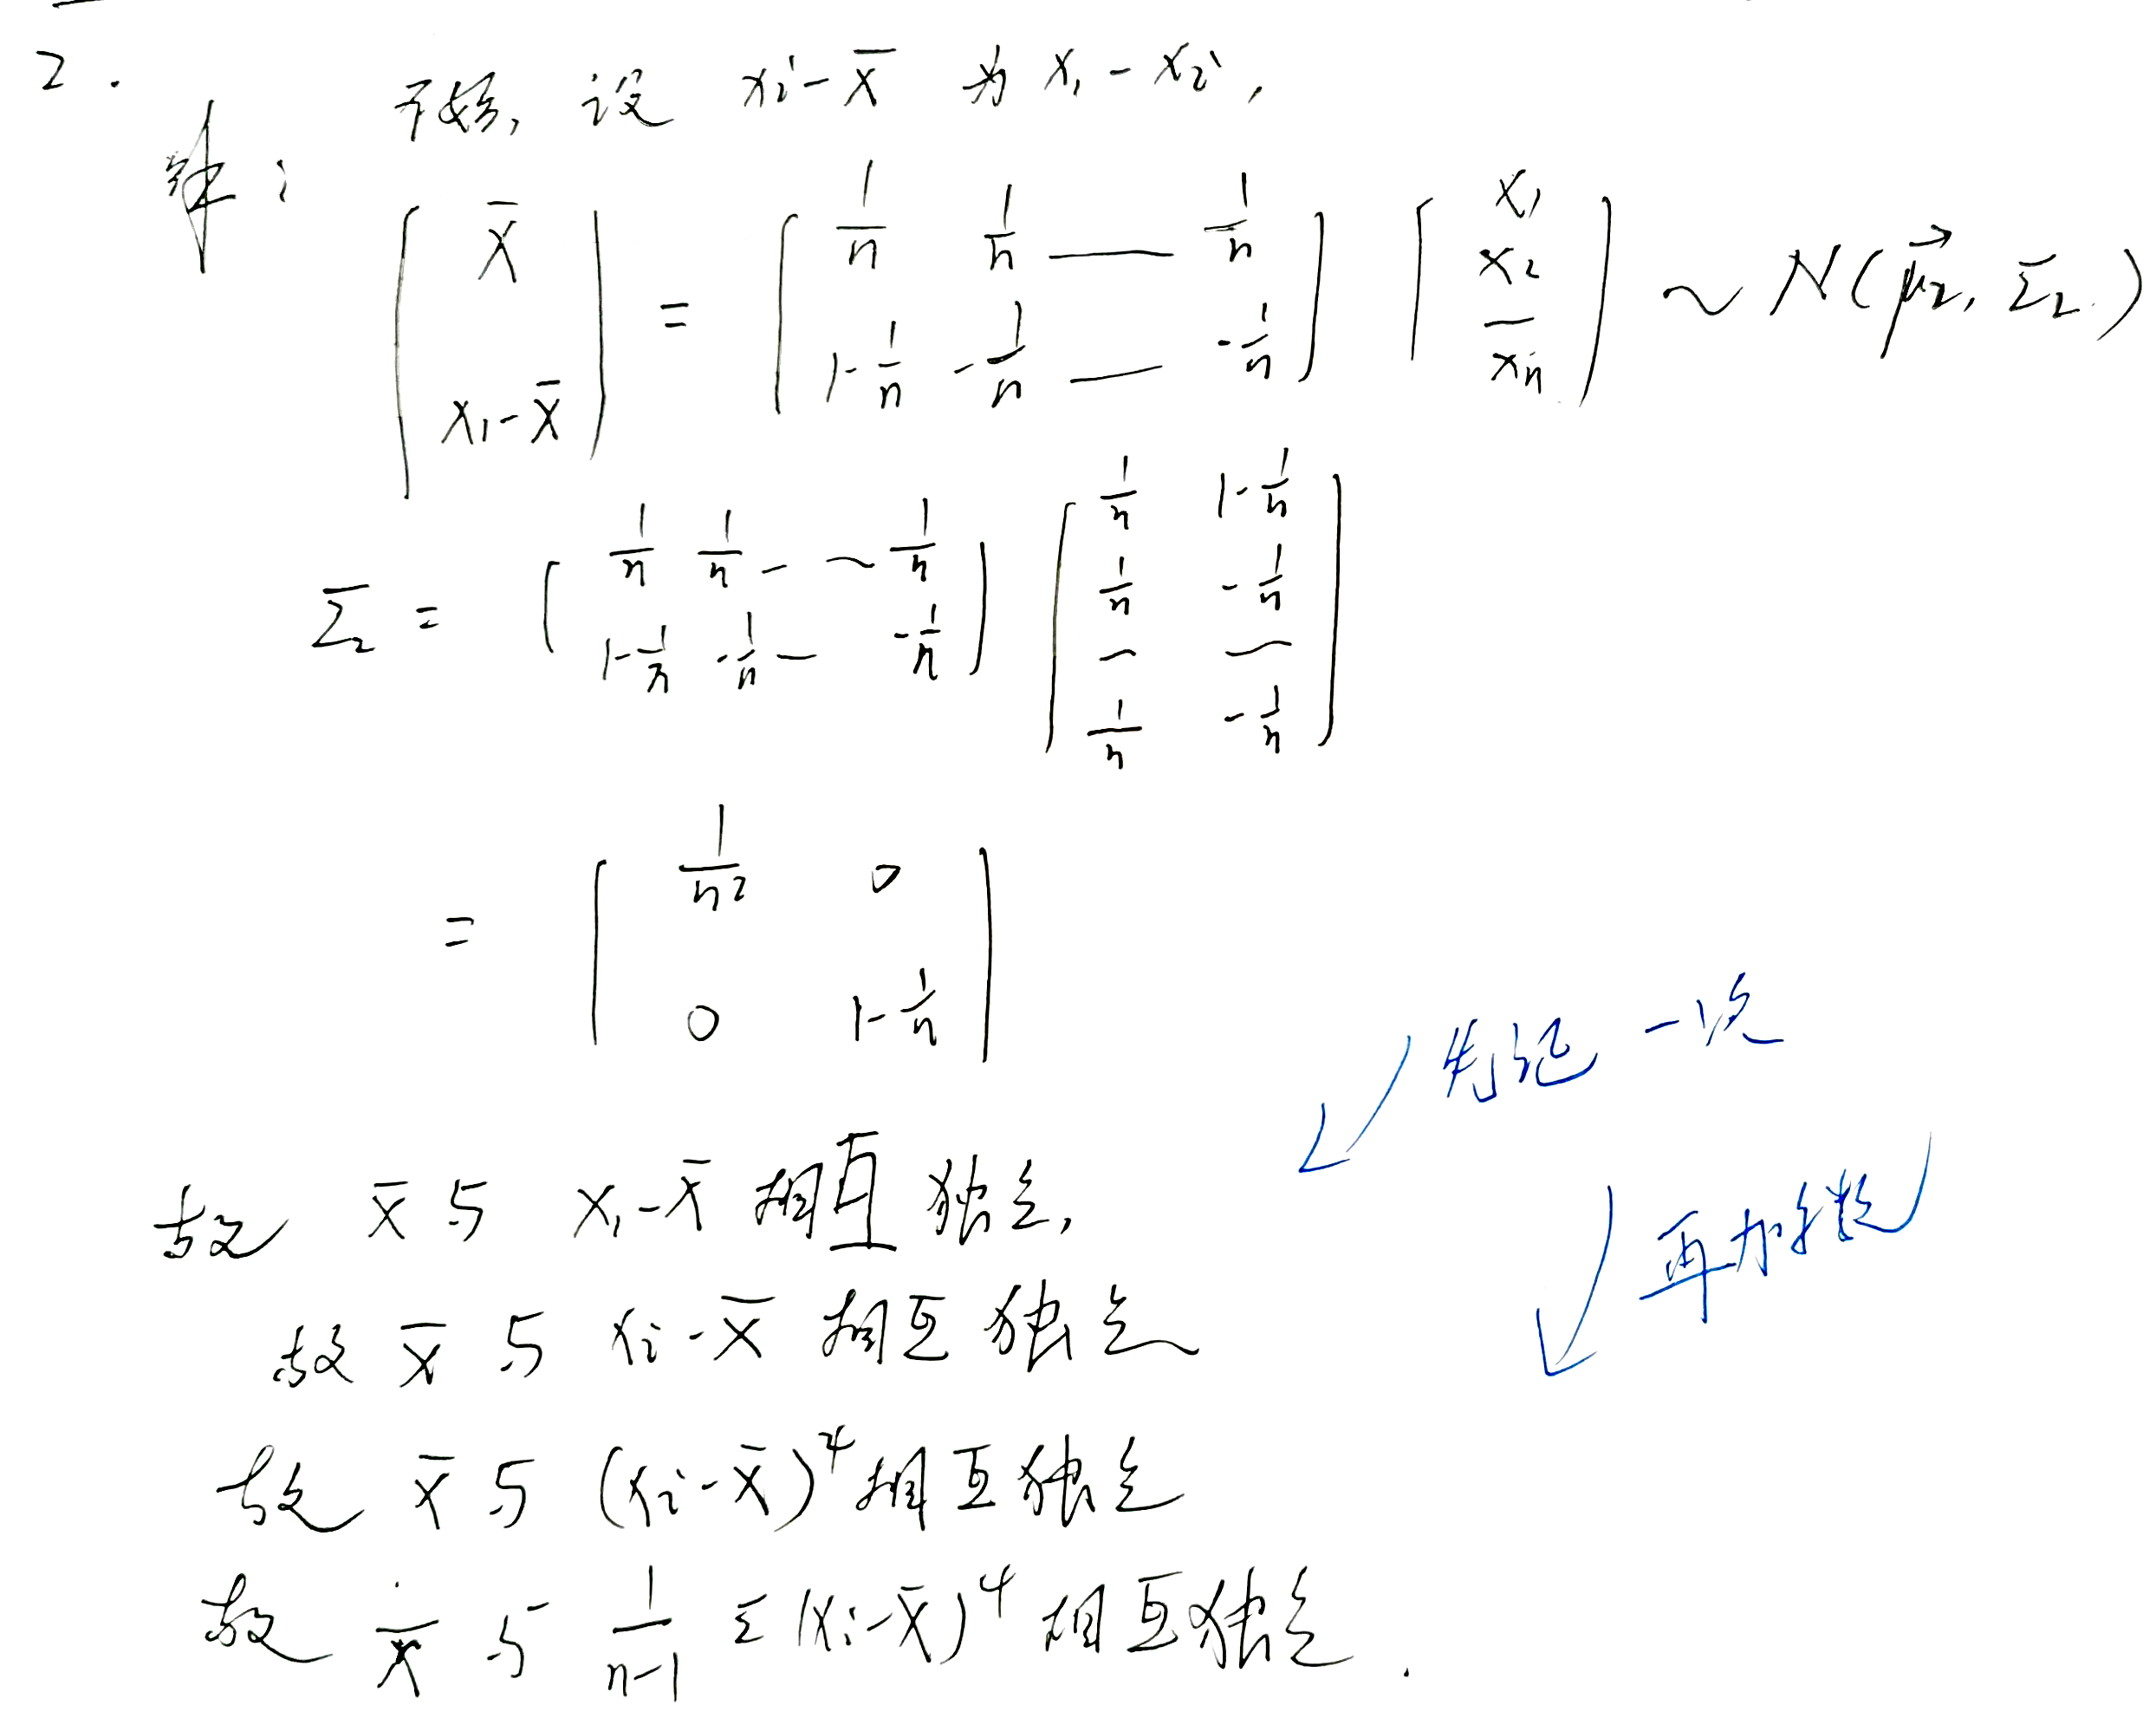 2.
不妨, 设 xi-x̄ 为 x₁-x₂,
解:
[x̄ ; x₁-x̄] = [1/n 1/n — 1/n ; 1-1/n -1/n — -1/n] [x₁ ; x₂ ; — ; xn] ~ N(μ⃗₂, Σ₂)
Σ₂ = [1/n 1/n - ~ 1/n ; 1-1/n -1/n — -1/n] [1/n 1-1/n ; 1/n -1/n ; — — ; 1/n -1/n]
= [1/n² 0 ; 0 1-1/n]
先记一次
故 x̄ 与 x₁-x̄ 相互独立,
故 x̄ 与 xi-x̄ 相互独立
故 x̄ 与 (xi-x̄)⁴ 相互独立
故 x̄ 与 1/(n-1) Σ(xi-x̄)⁴ 相互独立.